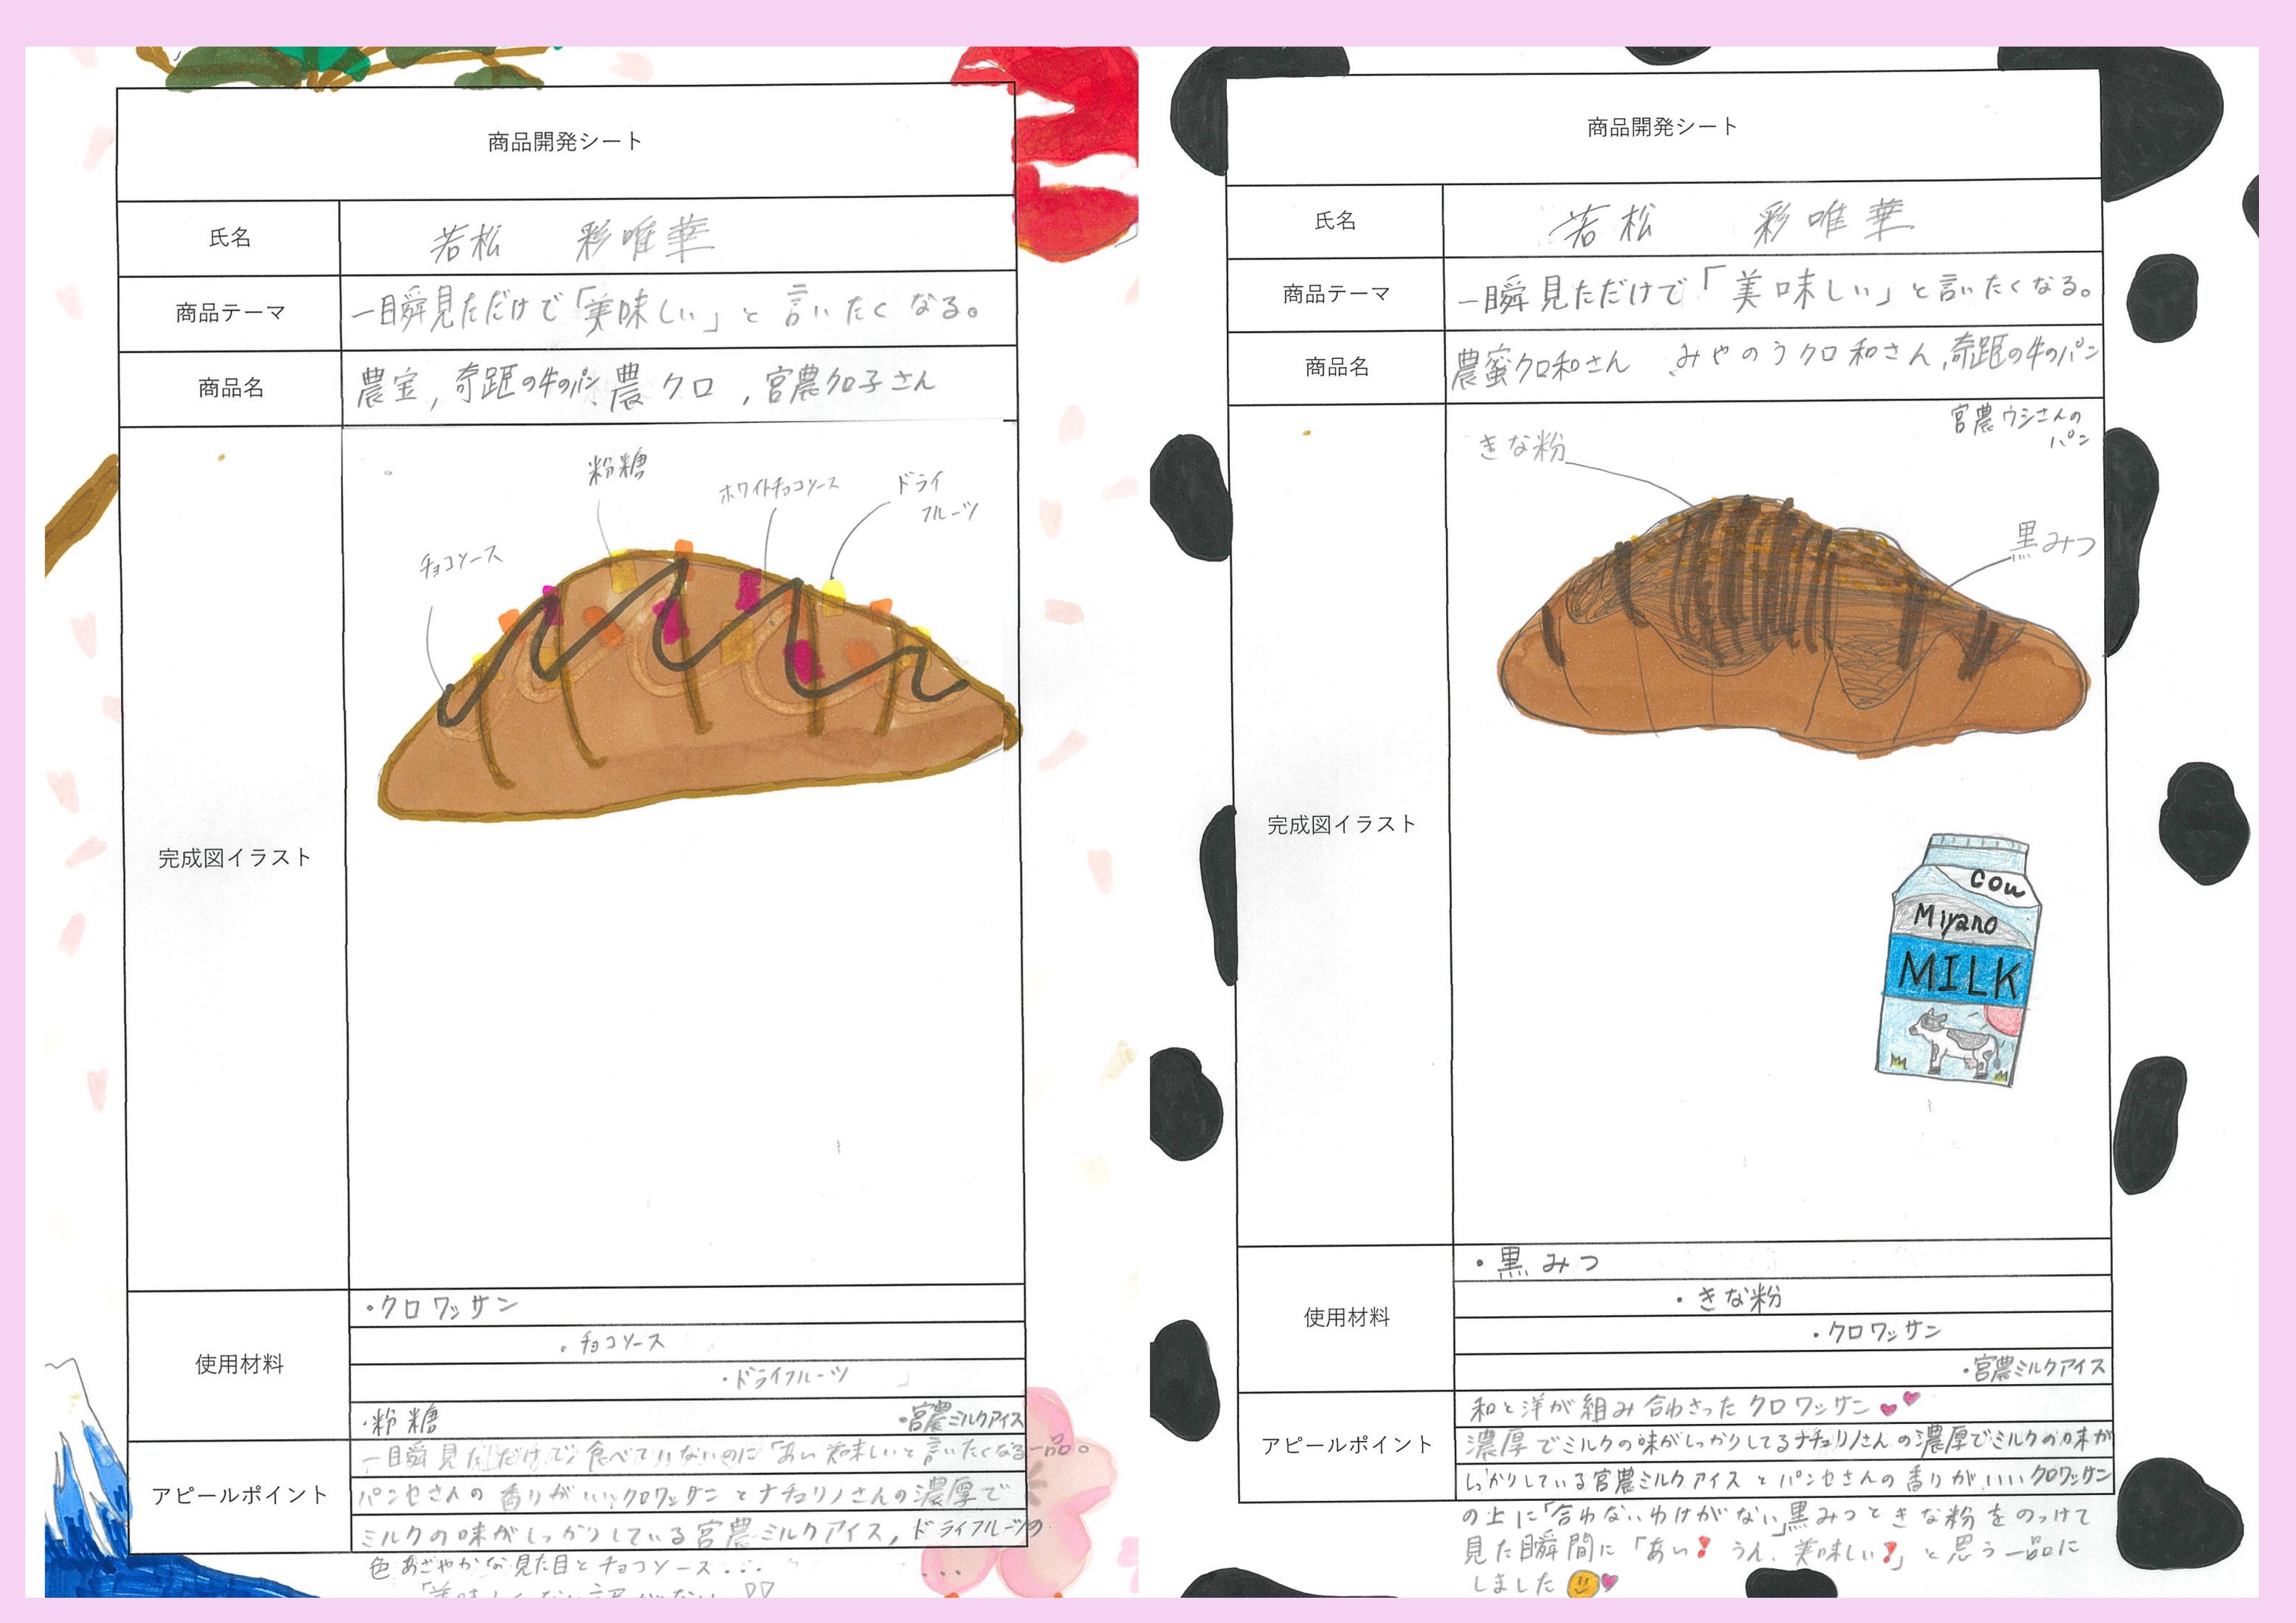 商品開発シート
氏名
若松 彩唯華
商品テーマ
一瞬見ただけで「美味しい」と言いたくなる。
商品名
農宝,奇跡の牛のパン、農クロ,宮農クロ子さん
完成図イラスト
粉糖
ホワイトチョコソース
ドライ
フルーツ
チョコソース
使用材料
・クロワッサン
・チョコソース
・ドライフルーツ
・粉糖 ・宮農ミルクアイス
アピールポイント
一瞬見ただけで、食べていないのに「あい美味しいと言いたくなる一品。
パンセさんの香りがいいクロワッサンとナチュリノさんの濃厚で
ミルクの味がしっかりしている宮農ミルクアイス,ドライフルーツの
色あざやかな見た目とチョコソース...
商品開発シート
氏名
若松 彩唯華
商品テーマ
一瞬見ただけで「美味しい」と言いたくなる。
商品名
農蜜クロ和さん 、みやのうクロ和さん,奇跡の牛のパン
宮農ウシさんの
パン
完成図イラスト
きな粉
黒みつ
Cow
Miyano
MILK
使用材料
・黒みつ
・きな粉
・クロワッサン
・宮農ミルクアイス
アピールポイント
和と洋が組み合わさったクロワッサン
濃厚でミルクの味がしっかりしてるナチュリノさんの濃厚でミルクの味が
しっかりしている宮農ミルクアイスとパンセさんの香りがいいクロワッサン
の上に「合わないわけがない」黒みつときな粉をのっけて
見た瞬間に「あい! うん、美味しい!」と思う一品に
しました